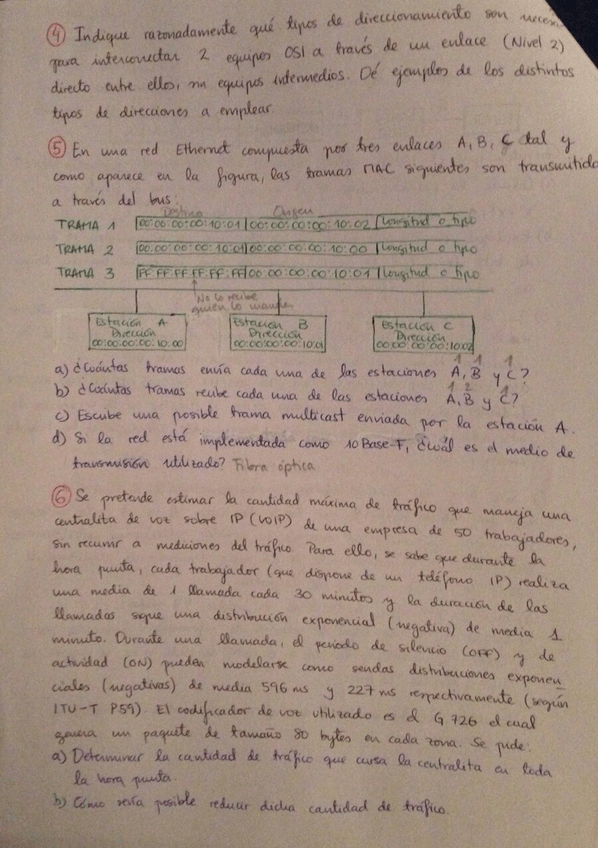 ④ Indique razonadamente qué tipos de direccionamiento son
para interconectar 2 equipos OSI a través de un enlace (Nivel 2)
directo entre ellos, sin equipos intermedios. Dé ejemplos de los distintos
tipos de direcciones a emplear.
⑤ En una red Ethernet compuesta por tres enlaces A, B, C tal y
como aparece en la figura, las tramas MAC siguientes son transmitida
a través del bus:
Destino Origen
TRAMA 1 00:00:00:00:10:01 00:00:00:00:10:02 Longitud o tipo
TRAMA 2 00:00:00:00:10:01 00:00:00:00:10:00 Longitud o tipo
TRAMA 3 FF:FF:FF:FF:FF:FF 00:00:00:00:10:01 Longitud o tipo
No lo recibe
quien lo manda
Estación A Estación B Estación C
Dirección Dirección Dirección
00:00:00:00:10:00 00:00:00:00:10:01 00:00:00:00:10:02
1 1 1
a) ¿Cuántas tramas envía cada una de las estaciones A, B y C?
1 2 1
b) ¿Cuántas tramas recibe cada una de las estaciones A, B y C?
c) Escribe una posible trama multicast enviada por la estación A.
d) Si la red está implementada como 10Base-F, ¿cuál es el medio de
transmisión utilizado? Fibra óptica
⑥ Se pretende estimar la cantidad máxima de tráfico que maneja una
centralita de voz sobre IP (VoIP) de una empresa de 50 trabajadores,
sin recurrir a mediciones del tráfico. Para ello, se sabe que durante la
hora punta, cada trabajador (que dispone de un teléfono IP) realiza
una media de 1 llamada cada 30 minutos y la duración de las
llamadas sigue una distribución exponencial (negativa) de media 1
minuto. Durante una llamada, el periodo de silencio (OFF) y de
actividad (ON) pueden modelarse como sendas distribuciones exponen
ciales (negativas) de media 596 ms y 227 ms respectivamente (según
ITU-T P59). El codificador de voz utilizado es el G726 el cual
genera un paquete de tamaño 80 bytes en cada zona. Se pide:
a) Determinar la cantidad de tráfico que cursa la centralita en toda
la hora punta.
b) Cómo sería posible reducir dicha cantidad de tráfico.